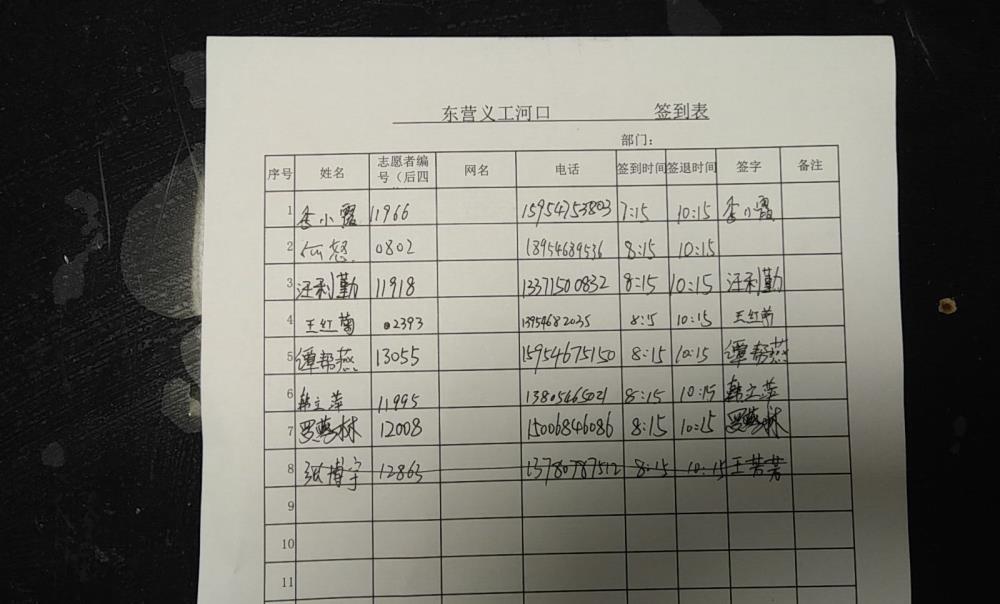 东营义工河口 签到表
部门：
序号 姓名 志愿者编号（后四 网名 电话 签到时间 签退时间 签字 备注
1 李小霞 11966 15954753803 7:15 10:15 李小霞
2 0802 18954689536 8:15 10:15
3 汪利勤 11918 13371500832 8:15 10:15 汪利勤
4 王红菊 02393 13954682035 8:15 10:15 王红菊
5 谭帮燕 13055 15954675150 8:15 10:15 谭帮燕
6 韩立萍 11995 13805465021 8:15 10:15 韩立萍
7 罗梦林 12008 15006846086 8:15 10:15 罗梦林
8 张博宇 12863 13780787512 8:15 10:15 王芳芳
9
10
11